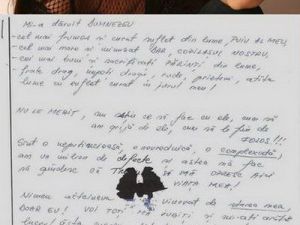 Mi-a dăruit DUMNEZEU
- cel mai frumos și curat suflet din lume, PUIU AL MEU,
- cel mai mare și minunat DAR, COPILAȘUL NOSTRU,
- cei mai buni și sacrificați PĂRINȚI din lume,
- frate drag, nepoți dragi, rude, prieteni, atâta
lume cu suflet curat în jurul meu!
NU LE MERIT, nu știu ce să fac cu ele, cum să
am grijă de ele, cum să le fiu de
FOLOS!!!
Sunt o neputincioasă, o complexată,
am un milion de defecte și astea mă fac
să gândesc că SĂ MĂ OPRESC AICI
VIAȚA MEA!
Nimeni altcineva vinovat de starea mea,
DOAR EU! VOI TOȚI MĂ IUBIȚI și mi-ați arătat